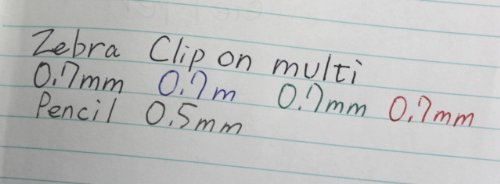 Zebra Clip on multi
0.7mm 0.7m 0.7mm 0.7mm
Pencil 0.5mm